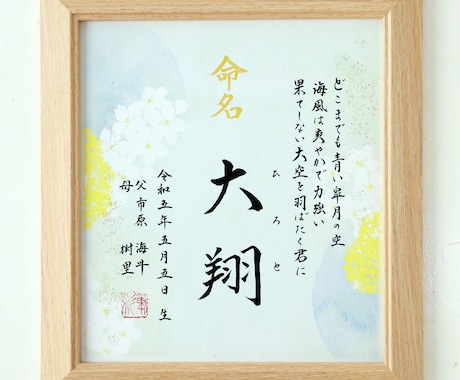 どこまでも青い皐月の空
海風は爽やかで力強い
果てしない大空を羽ばたく君に
命名
大翔
ひろと
令和五年五月五日 生
父 市原 海斗
母 樹里